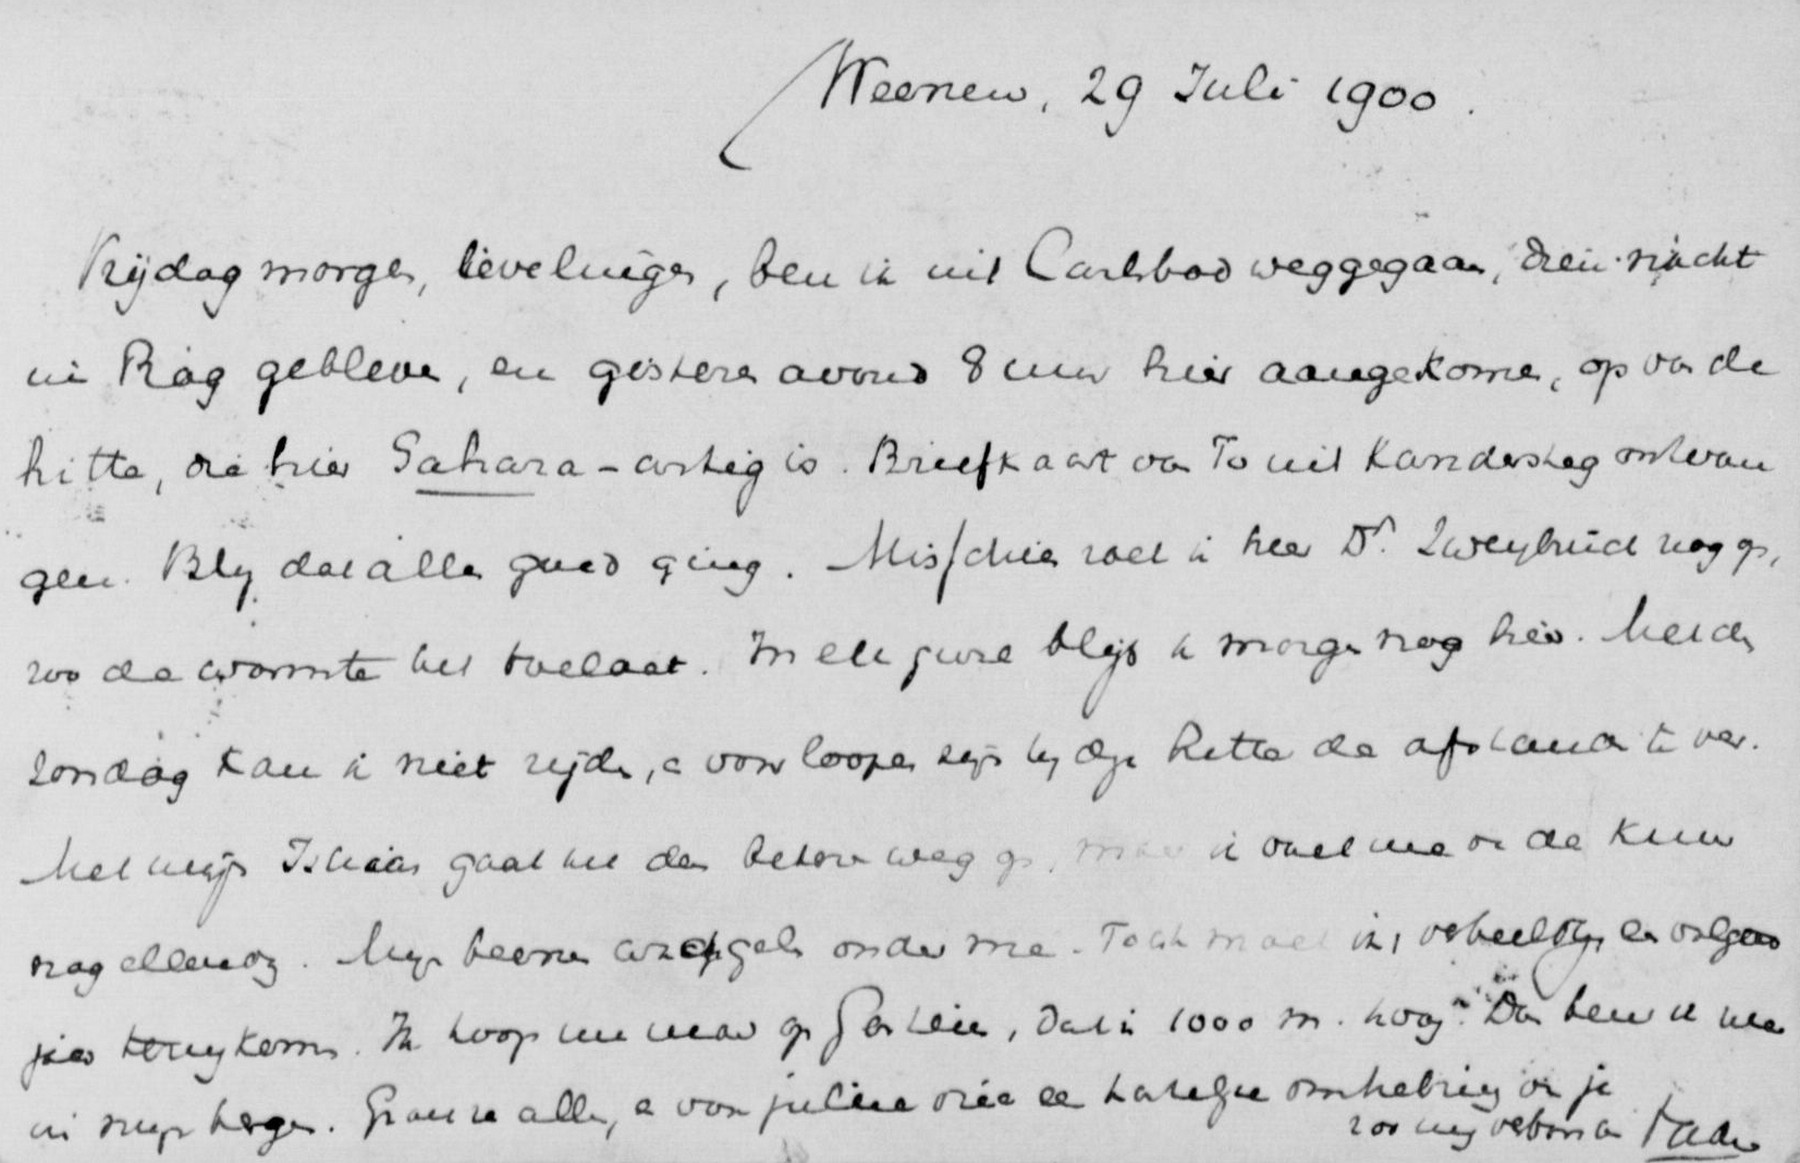 Weenen, 29 Juli 1900.
Vrijdag morgen, lievelingen, ben ik uit Carlsbad weggegaan, drie nacht
in Prag gebleven, en gisteren avond 8 uur hier aangekomen, op van de
hitte, die hier Sahara-artig is. Briefkaart van To uit Kandersteg ontvan
gen. Blij dat alles goed ging. Misschien zoek ik heer Dr. Zweybrück nog op,
zoo de warmte het toelaat. In elk geval blijf ik morgen nog hier. Met den
Zondag kan ik niet rijden, en voor loopen zijn bij deze hitte de afstanden te ver.
Met mijn Ischias gaat het den beteren weg op, maar ik voel me van de kuur
nog ellendig. Mijn beenen wiggelen onder me. Toch moet ik, volgend
jaar terugkomen. Ik hoop nu maar op Gastein, dat is 1000 m. hoog. Dan ben ik weer
in mijn bergen. Groet ze allen, en voor jullie drie een hartelijke omhelzing van je
zoo innig verbonden Vader